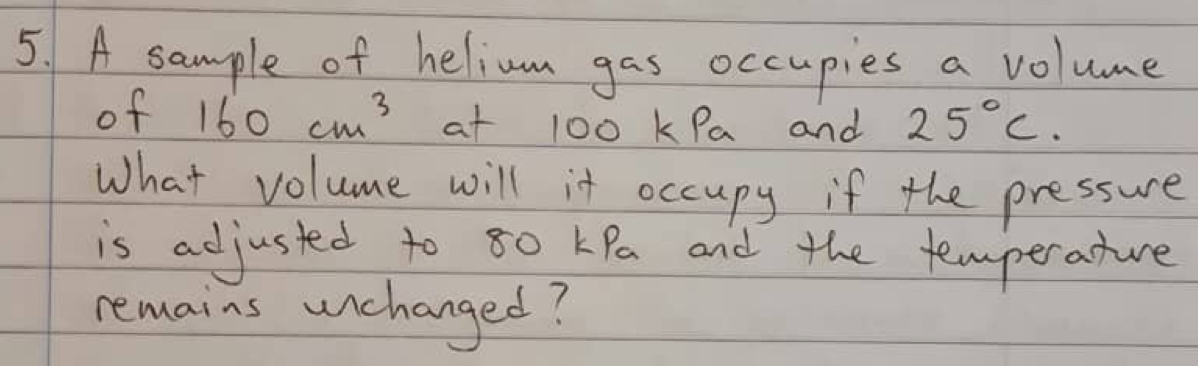 5. A sample of helium gas occupies a volume
of 160 cm³ at 100 kPa and 25°C.
What volume will it occupy if the pressure
is adjusted to 80 kPa and the temperature
remains unchanged?